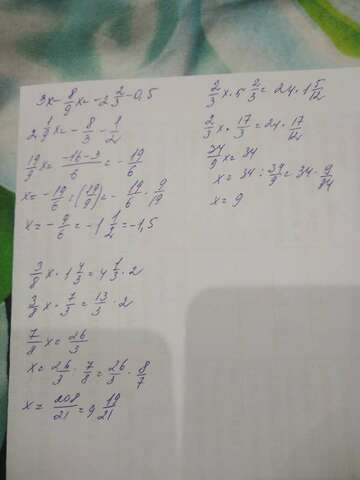 3x - 8/9 x = -2 2/3 - 0,5
2 1/9 x = - 8/3 - 1/2
19/9 x = (-16-3)/6 = - 19/6
x = - 19/6 : (19/9) = - 19/6 · 9/19
x = - 9/6 = -1 1/2 = -1,5
3/8 x · 1 4/3 = 4 1/3 · 2
3/8 x · 7/3 = 13/3 · 2
7/8 x = 26/3
x = 26/3 · 7/8 = 26/3 · 8/7
x = 208/21 = 9 19/21
2/3 x · 5 2/3 = 24 · 1 5/12
2/3 x · 17/3 = 24 · 17/12
34/9 x = 34
x = 34 : 34/9 = 34 · 9/34
x = 9